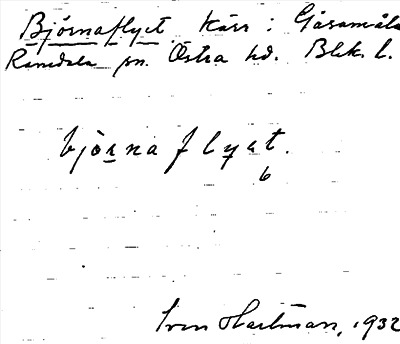 Björnaflyet Kärr i Gåsamåla
Ramdala sn. Östra hd. Blek. l.
bjòrna flyet.
6
Sven Hartman, 1932